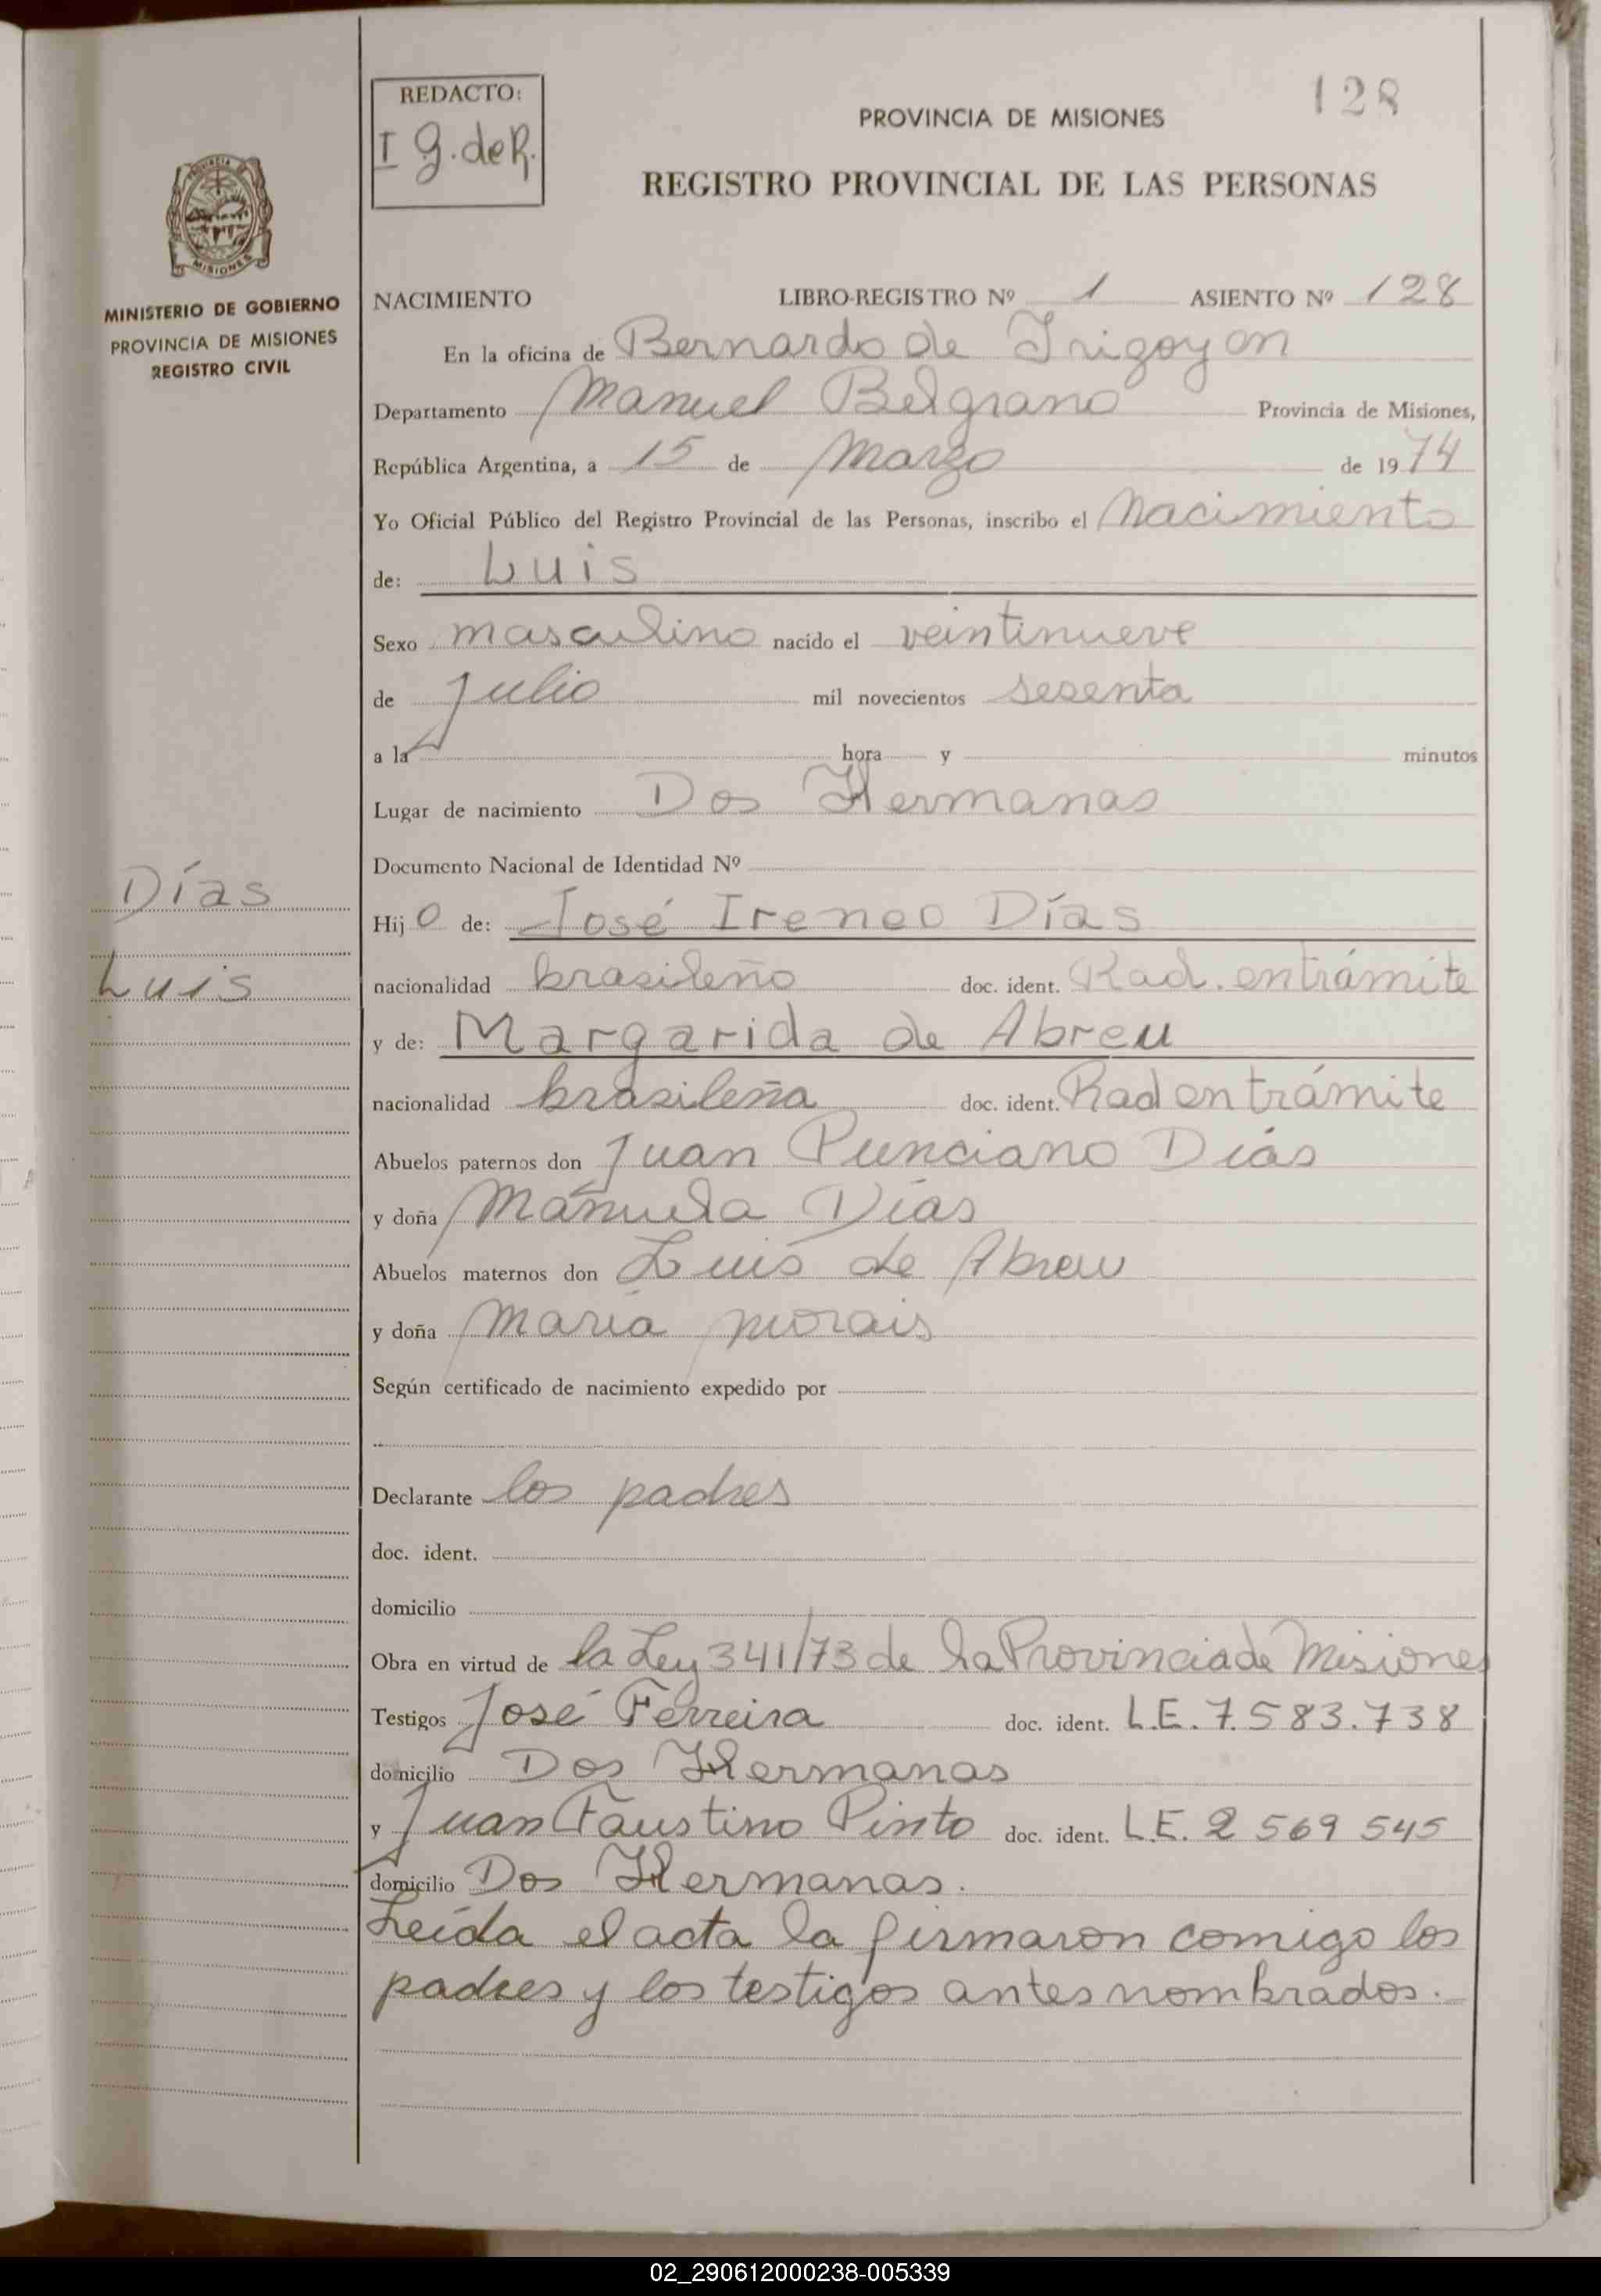 REDACTO:
I G. de R.
128
PROVINCIA DE MISIONES
REGISTRO PROVINCIAL DE LAS PERSONAS
MISIONES
MINISTERIO DE GOBIERNO
PROVINCIA DE MISIONES
REGISTRO CIVIL
NACIMIENTO LIBRO-REGISTRO Nº 1 ASIENTO Nº 128
En la oficina de Bernardo de Irigoyen
Departamento Manuel Belgrano Provincia de Misiones,
República Argentina, a 15 de Marzo de 1974
Yo Oficial Público del Registro Provincial de las Personas, inscribo el Nacimiento
de: Luis
Sexo masculino nacido el veintinueve
de Julio mil novecientos sesenta
a la hora y minutos
Lugar de nacimiento Dos Hermanas
Documento Nacional de Identidad Nº
Días
Hijo de: José Ireneo Días
Luis
nacionalidad brasileño doc. ident. Rad. en trámite
y de: Margarida de Abreu
nacionalidad brasileña doc. ident. Rad en trámite
Abuelos paternos don Juan Punciano Días
y doña Manuela Días
Abuelos maternos don Luis de Abreu
y doña María Morais
Según certificado de nacimiento expedido por
Declarante los padres
doc. ident.
domicilio
Obra en virtud de la Ley 341/73 de la Provincia de Misiones
Testigos José Ferreira doc. ident. L.E. 7.583.738
domicilio Dos Hermanas
y Juan Faustino Pinto doc. ident. L.E. 2 569 545
domicilio Dos Hermanas.
Leída el acta la firmaron comigo los
padres y los testigos antes nombrados.
02_290612000238-005339